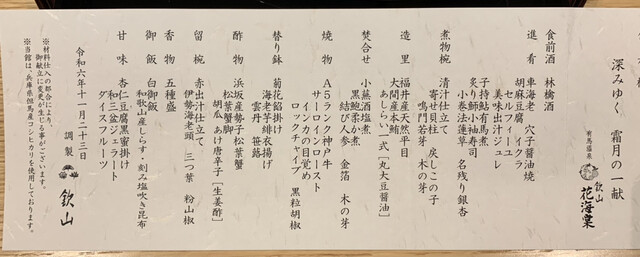 深みゆく 霜月の一献
有馬温泉
欽山
花海棠
食前酒 林檎酒
進肴 車海老 穴子醤油焼
胡麻豆腐 イクラ
セルフィーユ
美味出汁ジュレ
子持鮎有馬煮
炙り鰤小袖寿司
小巻法蓮草 名残り銀杏
煮物椀 清汁仕立て
寄せ貝柱 戻しこの子
鳴門若芽 木の芽
造里 福井産天然平目
大間産本鮪
あしらい一式 [丸大豆醤油]
焚合せ 小蕪酒塩煮
黒鮑柔か煮
結び人参 金箔 木の芽
焼物 A5ランク神戸牛
サーロインロースト
インカの目覚め
ロックチャイブ 黒粒胡椒
替り鉢 菊花餡掛け
海老真緋衣揚げ
雲丹 笹蕗
酢物 浜坂産勢子松葉蟹
松葉蟹脚
胡瓜 あけ唐辛子 [生姜酢]
留椀 赤出汁仕立て
伊勢海老頭 三つ葉 粉山椒
香物 五種盛
御飯 白御飯
和歌山産しらす・刻み塩吹き昆布
甘味 杏仁豆腐黒蜜掛け
和三盆ジェラート
ダイスフルーツ
令和六年十一月二十三日
調製 欽山
※材料仕入の都合により、
御献立に変更が生じる事がございます。
※当館は、兵庫県但馬産コシヒカリを使用しております。